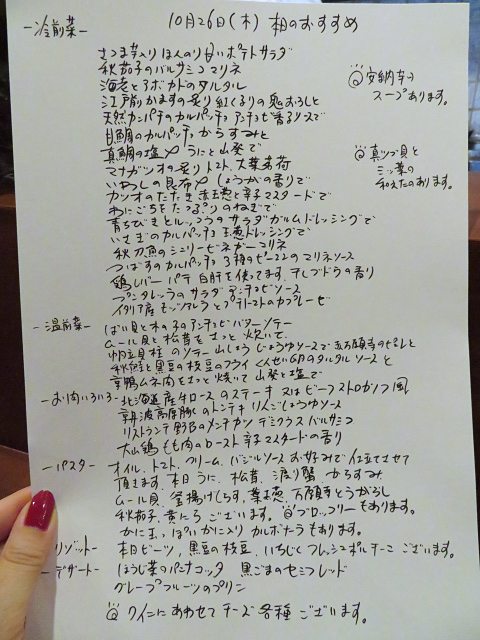 10月26日(木) 柏のおすすめ
ー冷前菜ー
さつま芋入りほんのり甘いポテトサラダ
秋茄子のバルサミコマリネ
海老とアボカドのタルタル
江戸前かますの炙り 紅くるりの鬼おろしと
天然カンパチのカルパッチョ アンチョビ香るソースで
目鯛のカルパッチョ からすみと
真鯛の塩〆 うにと山葵で
マナガツオの炙り トマト、大葉、茗荷
いわしの昆布〆 しょうがの香りで
カツオのたたき 赤玉葱と辛子マスタードで
わにごちを たっぷりのねぎで
青ちびきとルッコラのサラダ ガルムドレッシングで
いさきのカルパッチョ 玉葱ドレッシングで
秋刀魚のシェリービネガーマリネ
つばすのカルパッチョ 3種のピーマンのマリネソース
鶏レバーパテ 白肝を使ってます。干しブドウの香り
プンタレッラのサラダ アンチョビソース
イタリア産モッツァレラとプチトマトのカプレーゼ
◎安納芋の
スープあります。
◎真ツブ貝と
三ツ葉の
和えたのあります。
ー温前菜ー
ばい貝と木の子のアンチョビバターソテー
ムール貝と松茸をさっと炊いて
帆立貝柱のソテー 山しょうじょうゆソースで 万願寺のピュレと
秋鮭と黒豆の枝豆のフライ くんせい卵のタルタルソースと
京鴨ムネ肉をさっと焼いて 山葵と塩で
ーお肉いろいろー 北海道産牛ロースのステーキ 又は ビーフストロガノフ風
丹波高原豚のトンテキ りんごじょうゆソース
リストランテ野呂のメンチカツ デミグラスバルサミコ
大山鶏もも肉のロースト 辛子マスタードの香り
ーパスター オイル、トマト、クリーム、バジルソース お好みで仕立てさせて
頂きます。本日うに、松茸、渡り蟹、からすみ
ムール貝、釜揚げしらす、葉玉葱、万願寺とうがらし
秋茄子、黄にら ございます。◎ブロッコリーもあります。
かに玉っぽい かに入りカルボナーラもあります。
リゾットー 本日ビーツ、黒豆の枝豆、いちじく、フレッシュポルチーニ ございます。
ーデザートー ほうじ茶のパンナコッタ 黒ごまのセミフレッド
グレープフルーツのプリン
◎ワインにあわせてチーズ各種ございます。